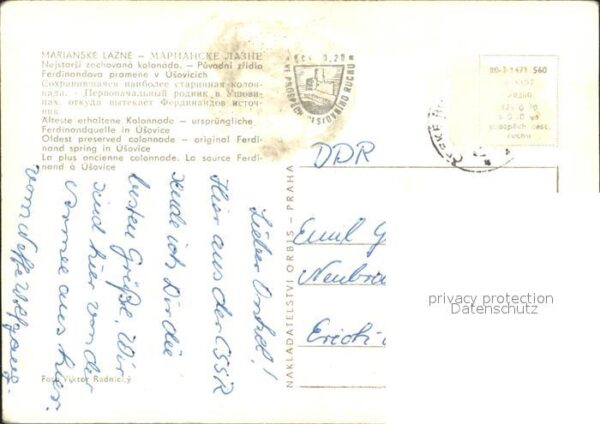 MARIÁNSKÉ LÁZNĚ – МАРИАНСКЕ ЛАЗНЕ
Nejstarší zachovaná kolonáda. – Původní zřídlo
Ferdinandova pramene v Úšovicích
Сохранившаяся наиболее старинная колон-
када. – Первоначальный родник в Ушови-
цах, откуда вытекает Фердинандов источ-
ник
Älteste erhaltene Kolonnade – ursprüngliche
Ferdinandquelle in Úšovice
Oldest preserved colonnade – original Ferdi-
nand spring in Úšovice
La plus ancienne colonnade. La source Ferdi-
nand à Úšovice
Kčs 0,20
VE PROSPĚCH CESTOVNÍHO RUCHU
Lieber Onkel!
Hier aus der ČSSR
sende ich Dir die
besten Grüße. Wir
sind hier von der
Armee aus hier.
vom Neffe Wolfgang.
Foto Viktor Radnický
NAKLADATELSTVÍ ORBIS – PRAHA
DDR
Emil G
Neubra
Erich-
privacy protection
Datenschutz